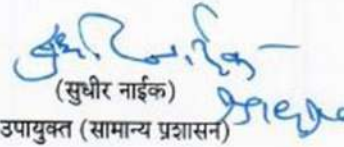 (सुधीर नाईक)
उपायुक्त (सामान्य प्रशासन)